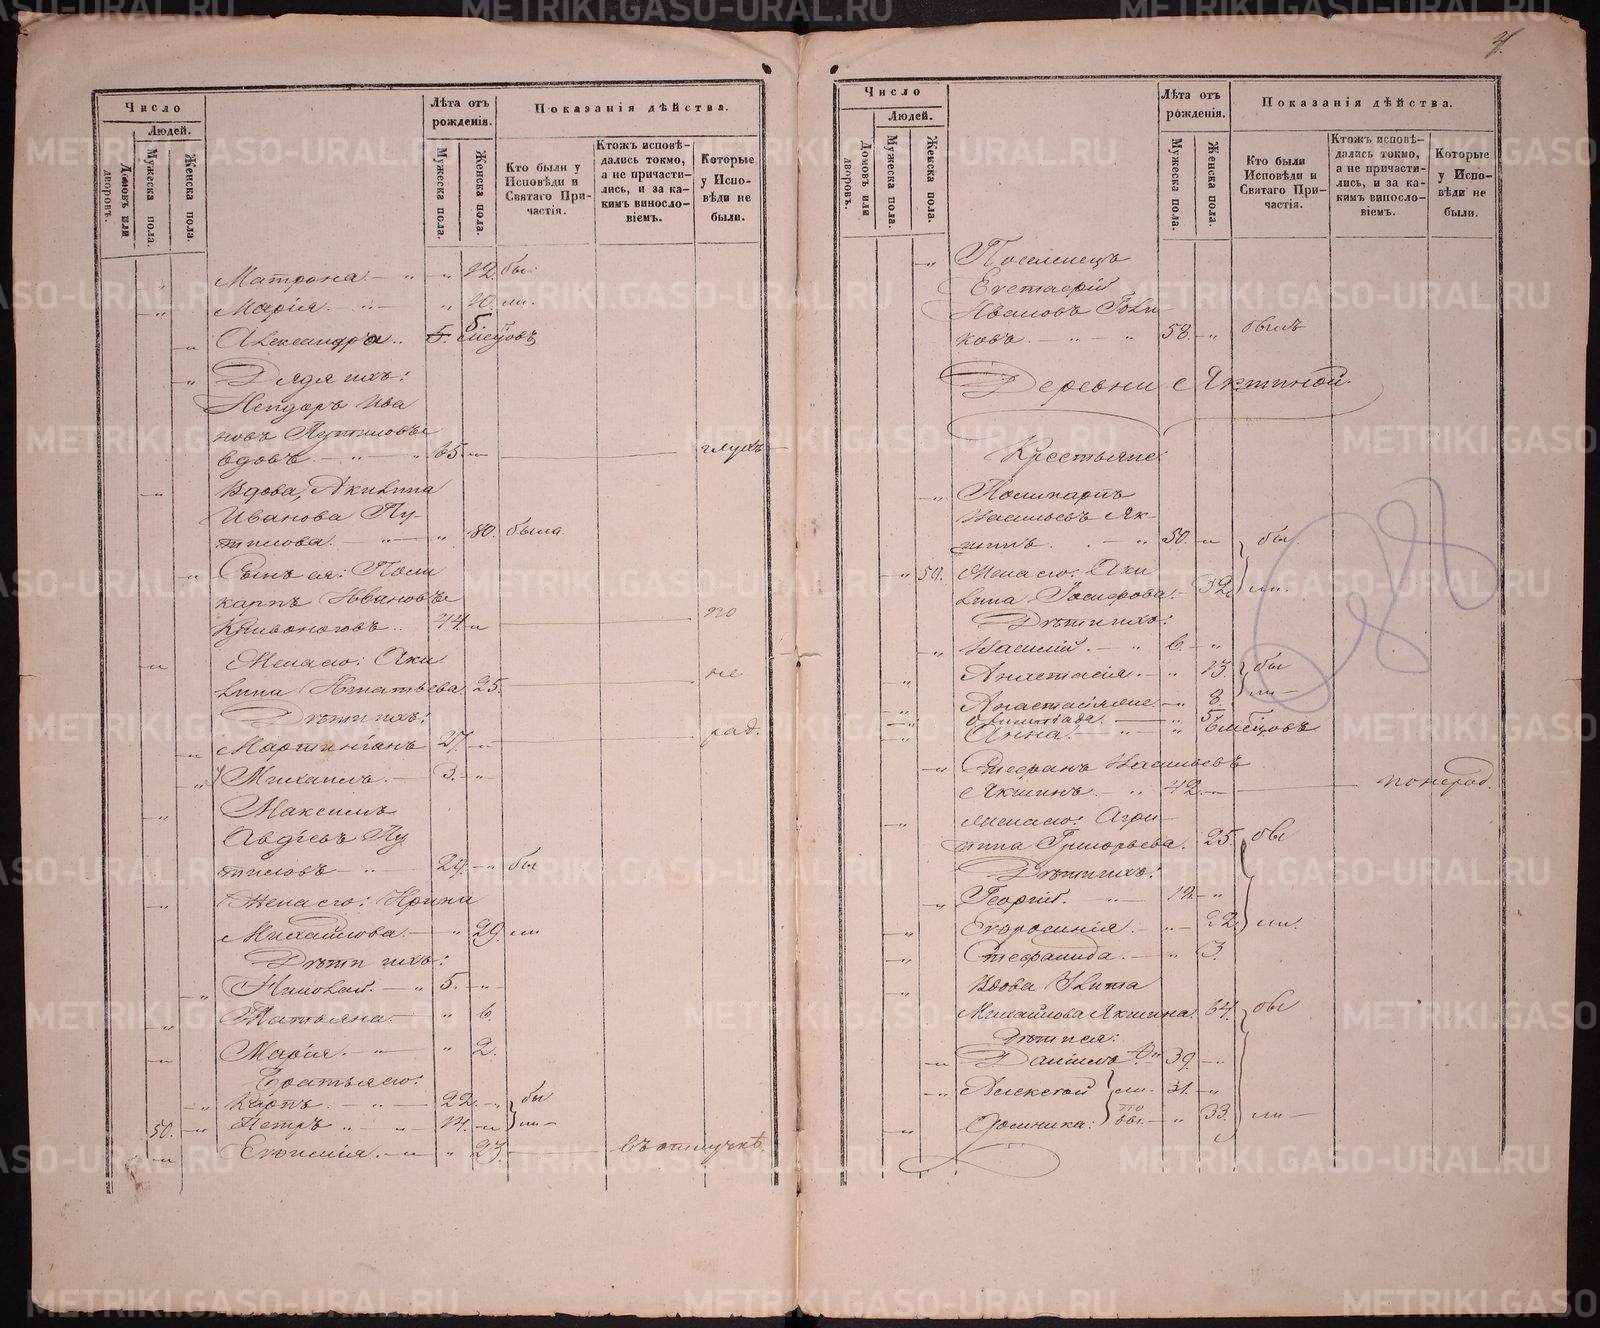 METRIKI.GASO-URAL.RU
Число
Людей.
Домовъ или дворовъ.
Мужеска пола.
Женска пола.
Лѣта отъ рожденія.
Мужеска пола.
Женска пола.
Показанія дѣйства.
Кто были у Исповѣди и Святаго Причастія.
Ктожъ исповѣдались токмо, а не причастились, и за какимъ винословіемъ.
Которые у Исповѣди не были.
Матрона 12. бы
Марія 10. ли.
Александра 5.
Дядя ихъ:
Ива
новъ Путиловъ
вдовъ 65 глухъ
Вдова, Акилина
Иванова Пу-
тилова 80. была
Сынъ ея: Поли
карпъ Ивановъ
Кривоноговъ 44. по
Жена его: Аки
лина Игнатьева 25. не
Дѣти ихъ:
27. рад.
Михаилъ 3.
Максимъ
Авдіевъ Пу
тиловъ 29. бы
Жена его: Ирина
Михайлова 29. ли
Дѣти ихъ:
Николай 5.
Татьяна 6.
Марія 2.
Братья его:
Карпъ 22. бы
50. Петръ 14. ли
Евфимія 23. въ отлучкѣ
Число
Людей.
Домовъ или дворовъ.
Мужеска пола.
Женска пола.
Лѣта отъ рожденія.
Мужеска пола.
Женска пола.
Показанія дѣйства.
Кто были Исповѣди и Святаго Причастія.
Ктожъ исповѣдались токмо, а не причастились, и за какимъ винословіемъ.
Которые у Исповѣди не были.
Поселенецъ
Евстафій
Ивановъ Голи
ковъ 58. былъ
Деревни Якшиной.
Крестьяне:
Поликарпъ
Васильевъ Як-
шинъ 50. бы
50. Жена его: Аки
лина Іосифова 52. ли.
Дѣти ихъ:
Василій 6.
Анастасія 13. бы
Анастасія 8. ли
Анна 5.
Стефанъ Васильевъ
Якшинъ 42. по нерад.
Жена его: Агри
пина Григорьева 25. бы
Дѣти ихъ:
Георгій 12.
Евфросинія ли.
Стефанида 3.
Вдова Улита
Михайлова Якшина 64. бы
Дѣти ея:
Даніилъ 39.
Алексѣй 31.
Домника 33. ли